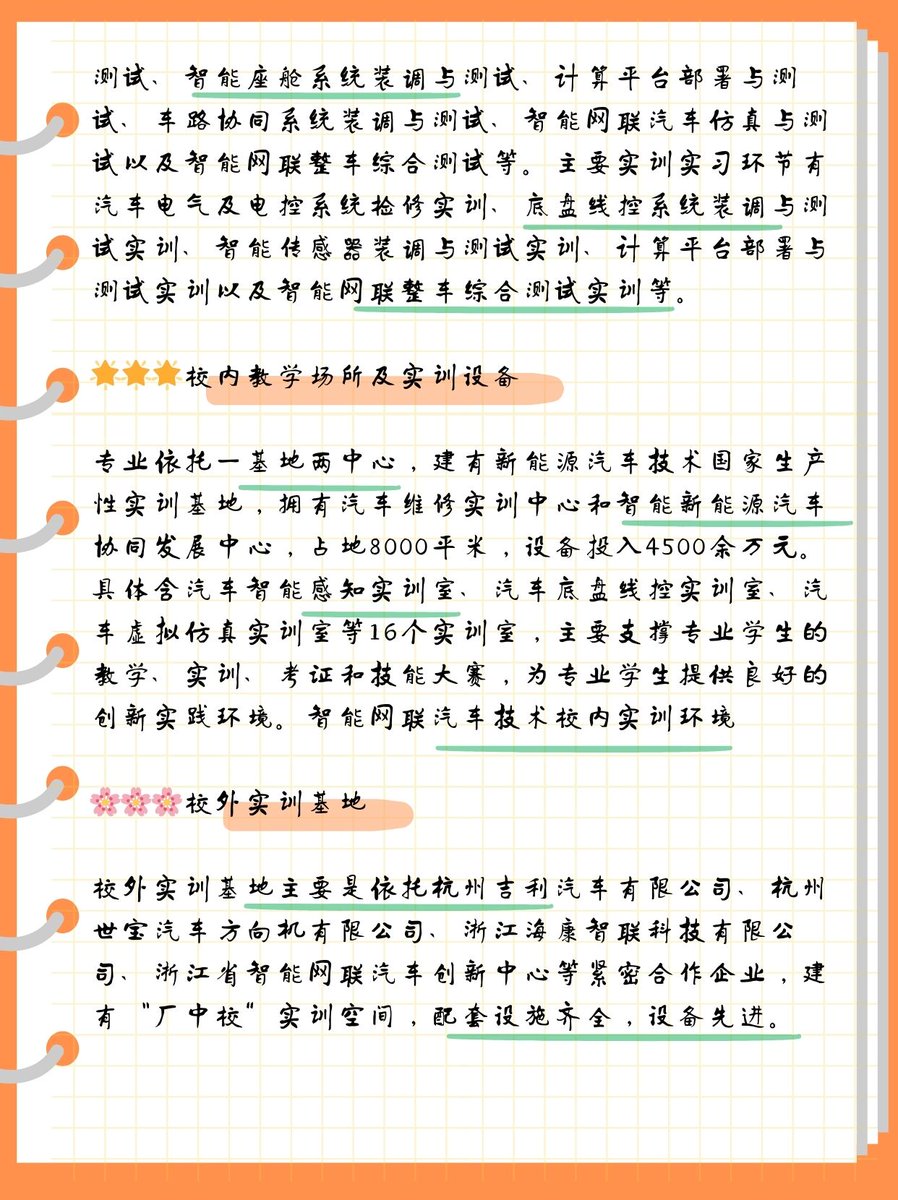 测试、智能座舱系统装调与测试、计算平台部署与测
试、车路协同系统装调与测试、智能网联汽车仿真与测
试以及智能网联整车综合测试等。主要实训实习环节有
汽车电气及电控系统检修实训、底盘线控系统装调与测
试实训、智能传感器装调与测试实训、计算平台部署与
测试实训以及智能网联整车综合测试实训等。
校内教学场所及实训设备
专业依托一基地两中心，建有新能源汽车技术国家生产
性实训基地，拥有汽车维修实训中心和智能新能源汽车
协同发展中心，占地8000平米，设备投入4500余万元。
具体含汽车智能感知实训室、汽车底盘线控实训室、汽
车虚拟仿真实训室等16个实训室，主要支撑专业学生的
教学、实训、考证和技能大赛，为专业学生提供良好的
创新实践环境。智能网联汽车技术校内实训环境
校外实训基地
校外实训基地主要是依托杭州吉利汽车有限公司、杭州
世宝汽车方向机有限公司、浙江海康智联科技有限公
司、浙江省智能网联汽车创新中心等紧密合作企业，建
有“厂中校”实训空间，配套设施齐全，设备先进。